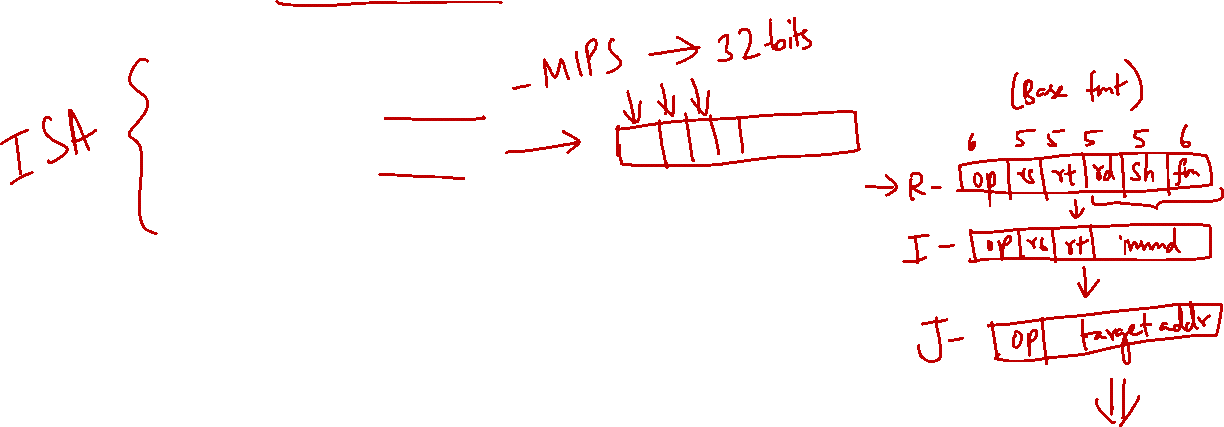 - MIPS → 32 bits
ISA
(Base fmt)
6 5 5 5 5 6
→ R - op rs rt rd sh fn
I - op rs rt immd
J - op target addr